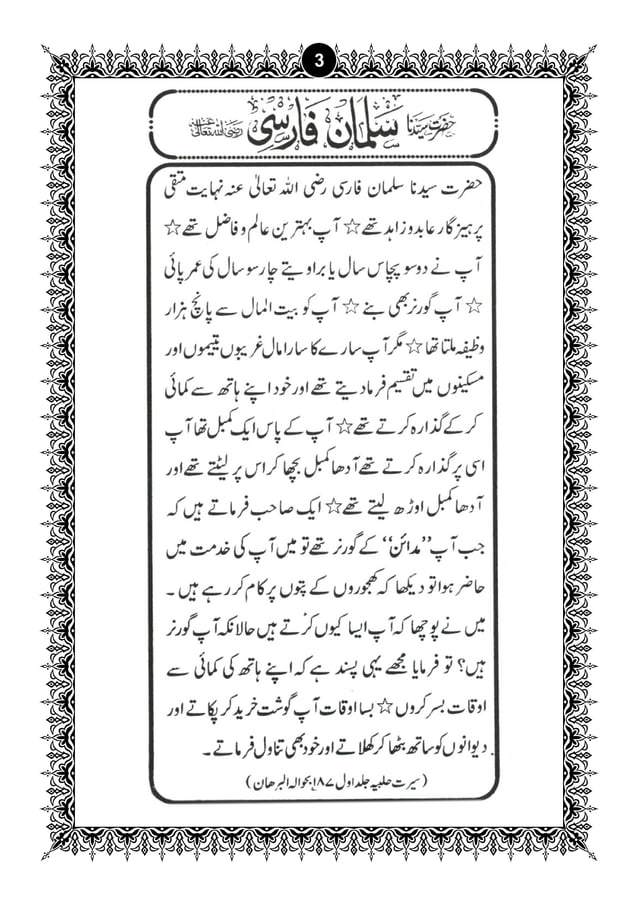 3
حضرت سیدنا سلمان فارسی رضی اللہ تعالیٰ عنہ
حضرت سیدنا سلمان فارسی رضی اللہ تعالیٰ عنہ نہایت متقی
پرہیزگار عابد و زاہد تھے ☆ آپ بہترین عالم و فاضل تھے ☆
آپ نے دو سو پچاس سال یا براویتے چار سو سال کی عمر پائی
☆ آپ گورنر بھی بنے ☆ آپ کو بیت المال سے پانچ ہزار
وظیفہ ملتا تھا ☆ مگر آپ سارے کا سارا مال غریبوں یتیموں اور
مسکینوں میں تقسیم فرما دیتے تھے اور خود اپنے ہاتھ سے کمائی
کر کے گذارہ کرتے تھے ☆ آپ کے پاس ایک کمبل تھا آپ
اسی پر گذارہ کرتے تھے آدھا کمبل بچھا کر اس پر لیٹتے تھے اور
آدھا کمبل اوڑھ لیتے تھے ☆ ایک صاحب فرماتے ہیں کہ
جب آپ ’’مدائن‘‘ کے گورنر تھے تو میں آپ کی خدمت میں
حاضر ہوا تو دیکھا کہ کھجوروں کے پتوں پر کام کر رہے ہیں ۔
میں نے پوچھا کہ آپ ایسا کیوں کرتے ہیں حالانکہ آپ گورنر
ہیں؟ تو فرمایا مجھے یہی پسند ہے کہ اپنے ہاتھ کی کمائی سے
اوقات بسر کروں ☆ بسا اوقات آپ گوشت خرید کر پکاتے اور
دیوانوں کو ساتھ بٹھا کر کھلاتے اور خود بھی تناول فرماتے ۔
(سیرت حلبیہ جلد اول ۱۸۷ بحوالہ البرھان)